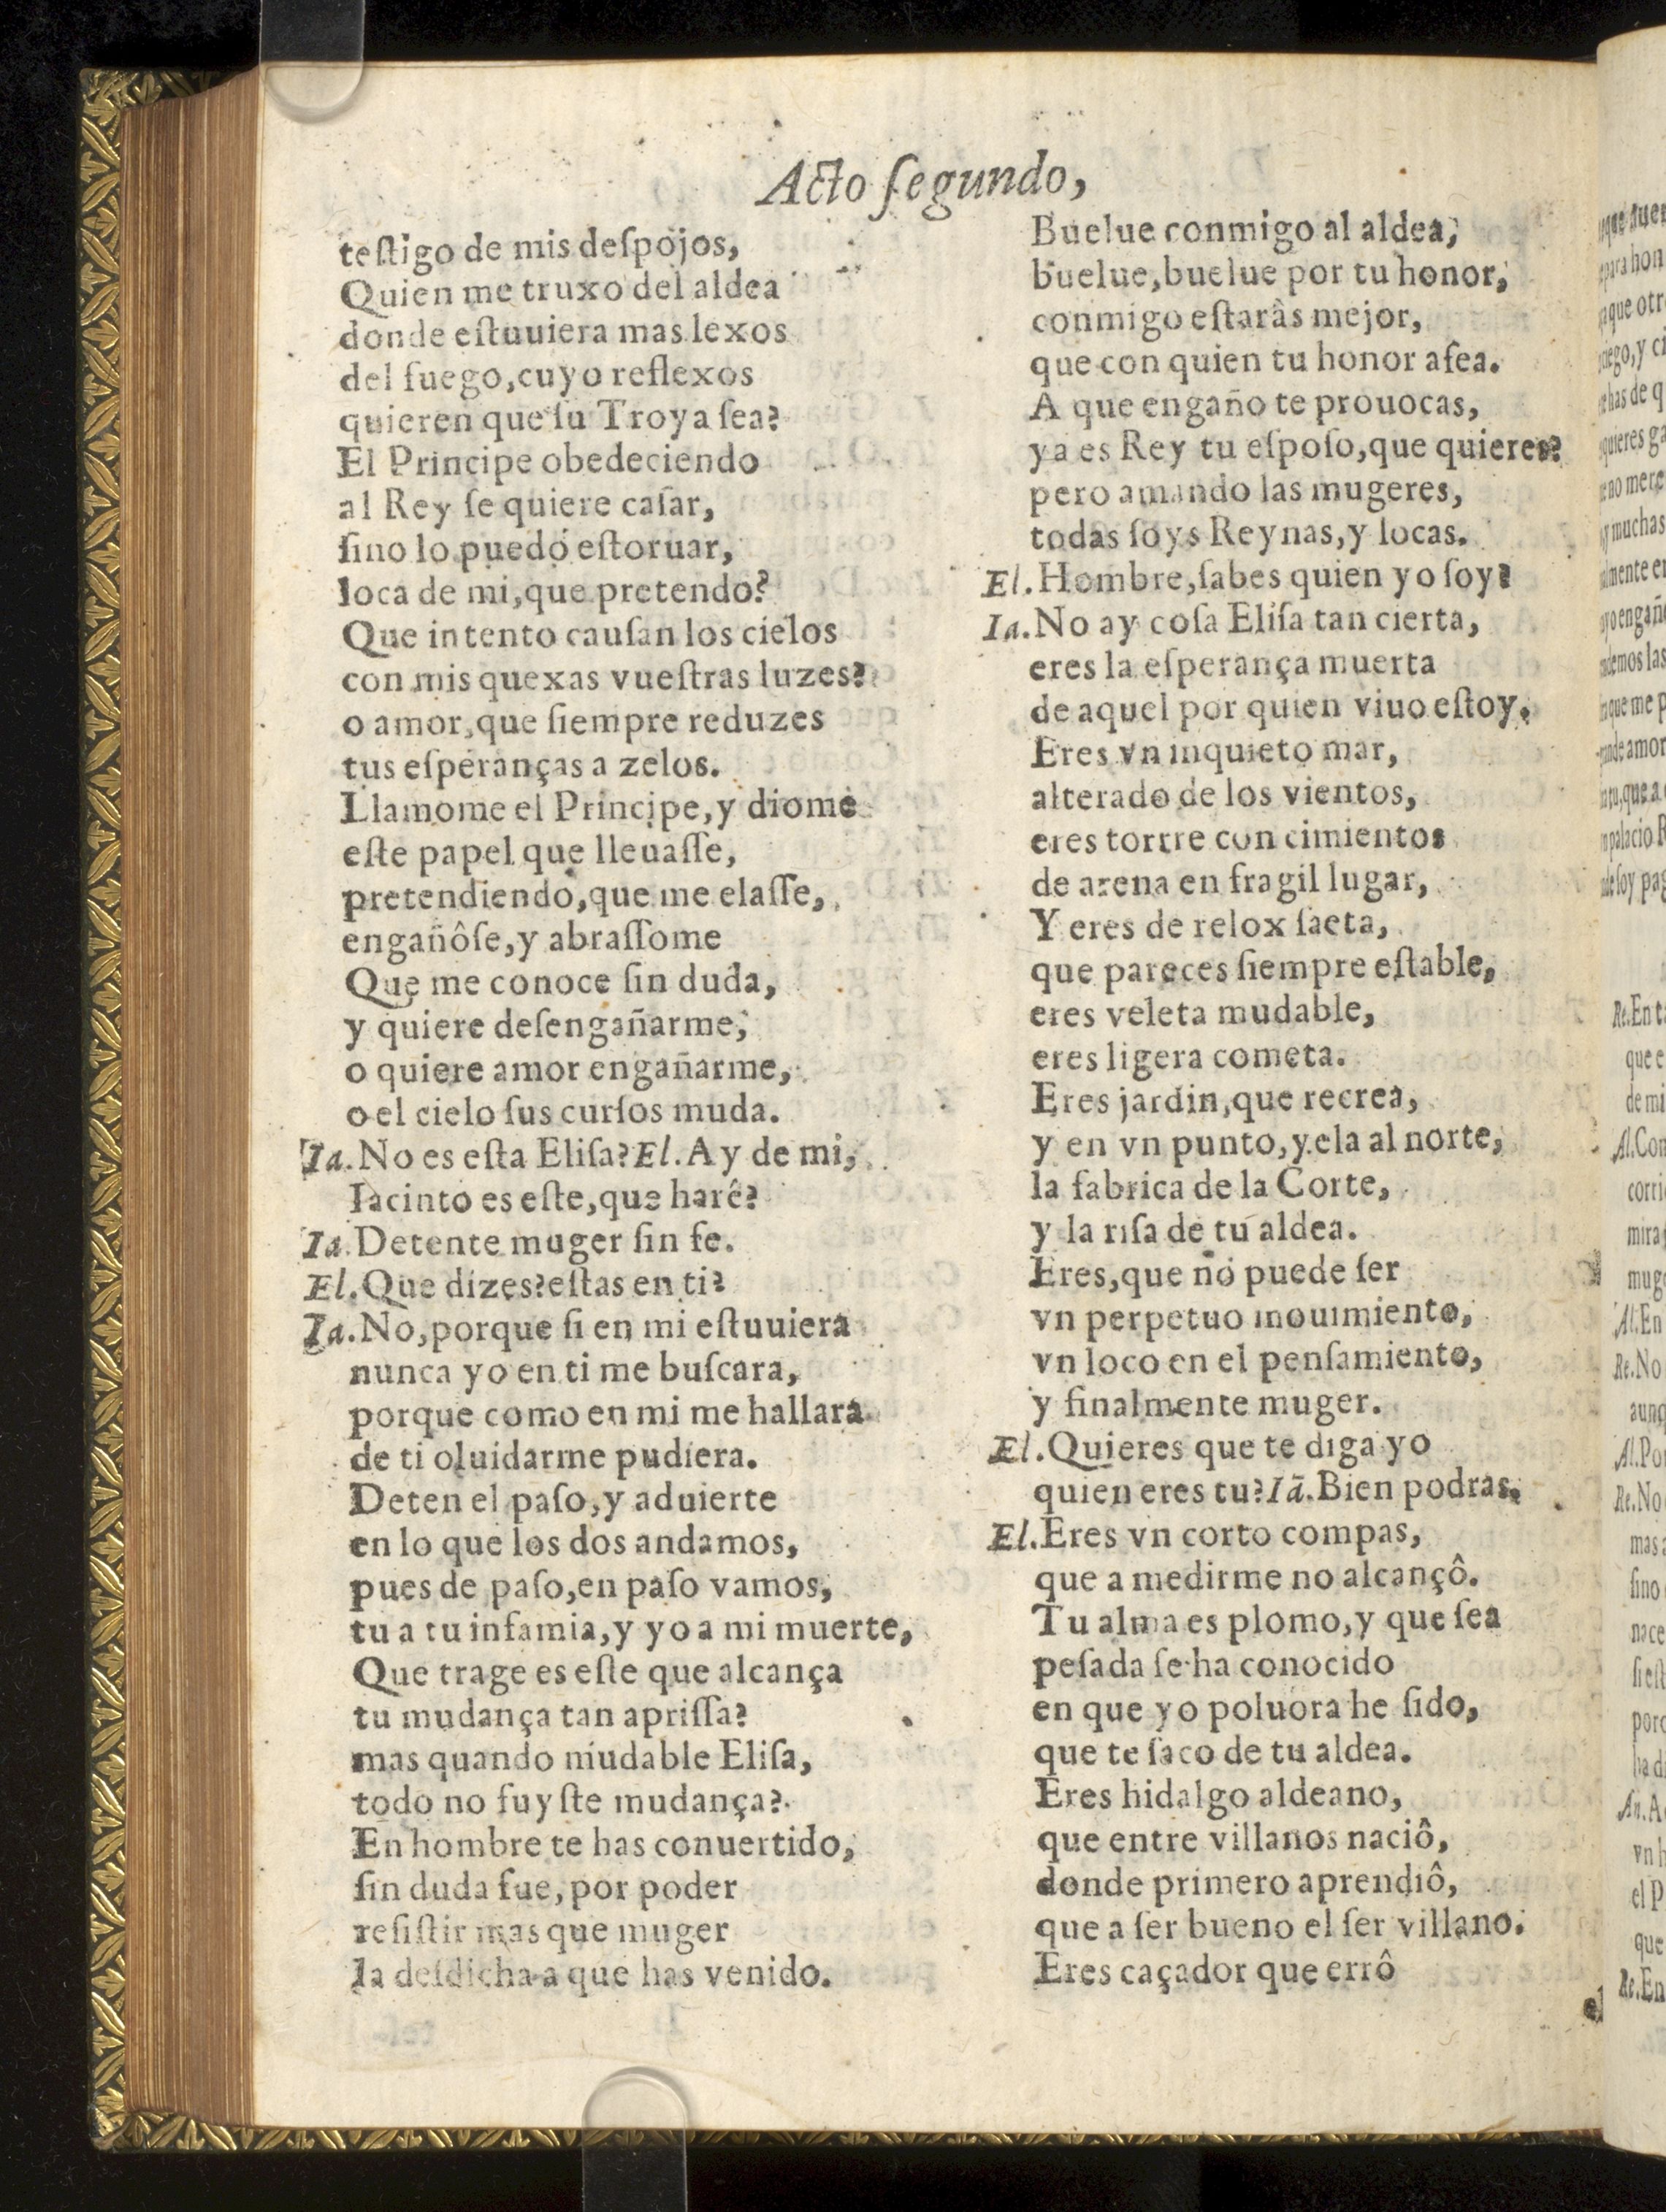 Acto ſegundo,
teſtigo de mis deſpojos,
Quien me truxo del aldea
donde eſtuuiera mas lexos
del fuego,cuyo reflexos
quieren que ſu Troya ſea?
El Principe obedeciendo
al Rey ſe quiere caſar,
ſino lo puedo eſtoruar,
loca de mi,que pretendo?
Que intento cauſan los cielos
con mis quexas vueſtras luzes?
o amor,que ſiempre reduzes
tus eſperanças a zelos.
Llamome el Principe,y diome
eſte papel que lleuaſſe,
pretendiendo,que me elaſſe,
engañôſe,y abraſſome
Que me conoce ſin duda,
y quiere deſengañarme,
o quiere amor engañarme,
o el cielo ſus curſos muda.
Ia.No es eſta Eliſa?El.Ay de mi,
Iacinto es eſte,que harê?
Ia.Detente muger ſin fe.
El.Que dizes?eſtas en ti?
Ia.No,porque ſi en mi eſtuuiera
nunca yo en ti me buſcara,
porque como en mi me hallara
de ti oluidarme pudiera.
Deten el paſo,y aduierte
en lo que los dos andamos,
pues de paſo,en paſo vamos,
tu a tu infamia,y yo a mi muerte,
Que trage es eſte que alcança
tu mudança tan apriſſa?
mas quando mudable Eliſa,
todo no fuyſte mudança?
En hombre te has conuertido,
ſin duda fue,por poder
reſiſtir mas que muger
la deſdicha a que has venido.
Buelue conmigo al aldea,
buelue,buelue por tu honor,
conmigo eſtaràs mejor,
que con quien tu honor afea.
A que engaño te prouocas,
ya es Rey tu eſpoſo,que quieres?
pero amando las mugeres,
todas ſoys Reynas,y locas.
El.Hombre,ſabes quien yo ſoy?
Ia.No ay coſa Eliſa tan cierta,
eres la eſperança muerta
de aquel por quien viuo eſtoy.
Eres vn inquieto mar,
alterado de los vientos,
eres tortre con cimientos
de arena en fragil lugar,
Y eres de relox ſaeta,
que pareces ſiempre eſtable,
eres veleta mudable,
eres ligera cometa.
Eres jardin,que recrea,
y en vn punto,yela al norte,
la fabrica de la Corte,
y la riſa de tu aldea.
Eres,que no puede ſer
vn perpetuo mouimiento,
vn loco en el penſamiento,
y finalmente muger.
El.Quieres que te diga yo
quien eres tu?Iā.Bien podras.
El.Eres vn corto compas,
que a medirme no alcançô.
Tu alma es plomo,y que ſea
peſada ſe ha conocido
en que yo poluora he ſido,
que te ſaco de tu aldea.
Eres hidalgo aldeano,
que entre villanos naciô,
donde primero aprendiô,
que a ſer bueno el ſer villano.
Eres caçador que errô
el